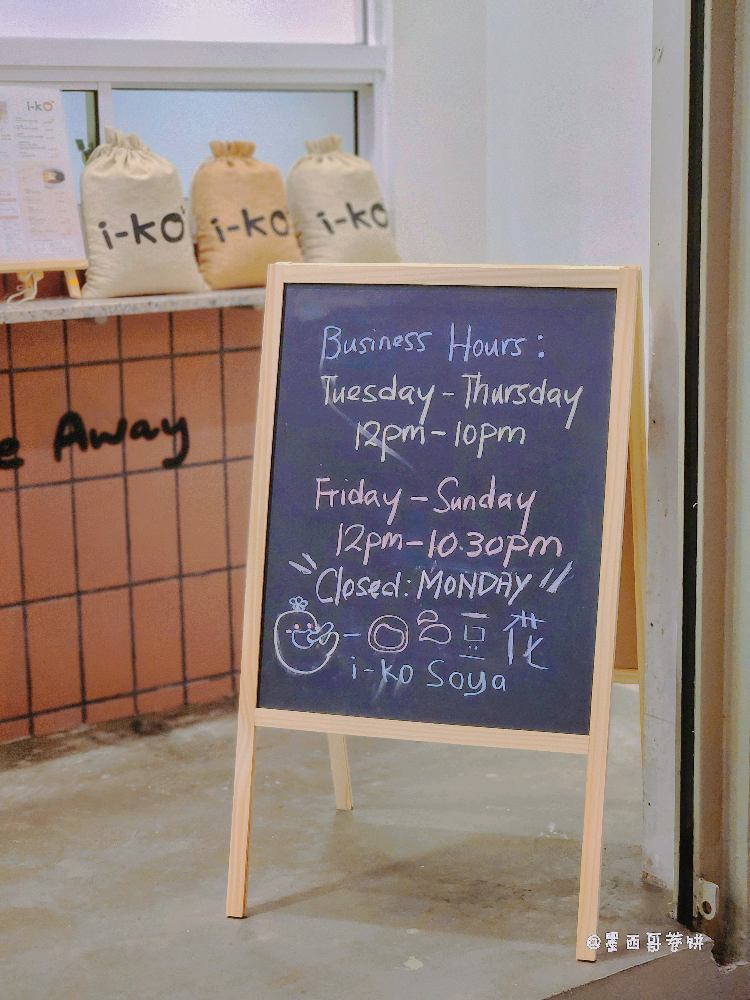 i-KO
i-KO
i-KO
i-KO
e Away
Business Hours:
Tuesday - Thursday
12pm - 10pm
Friday - Sunday
12pm - 10.30pm
Closed: MONDAY
豆花
i-KO Soya
@墨西哥卷饼